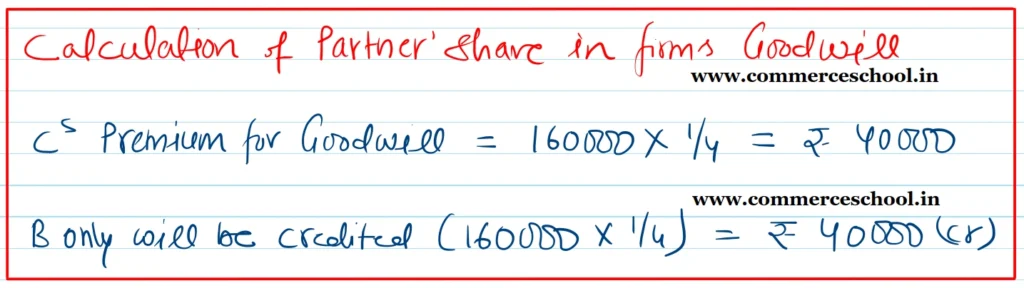 Calculation of Partner' Share in firms Goodwill
www.commerceschool.in
Cs Premium for Goodwill = 160000 X 1/4 = ₹ 40000
www.commerceschool.in
B only will be credited (160000 X 1/4) = ₹ 40000 (cr)